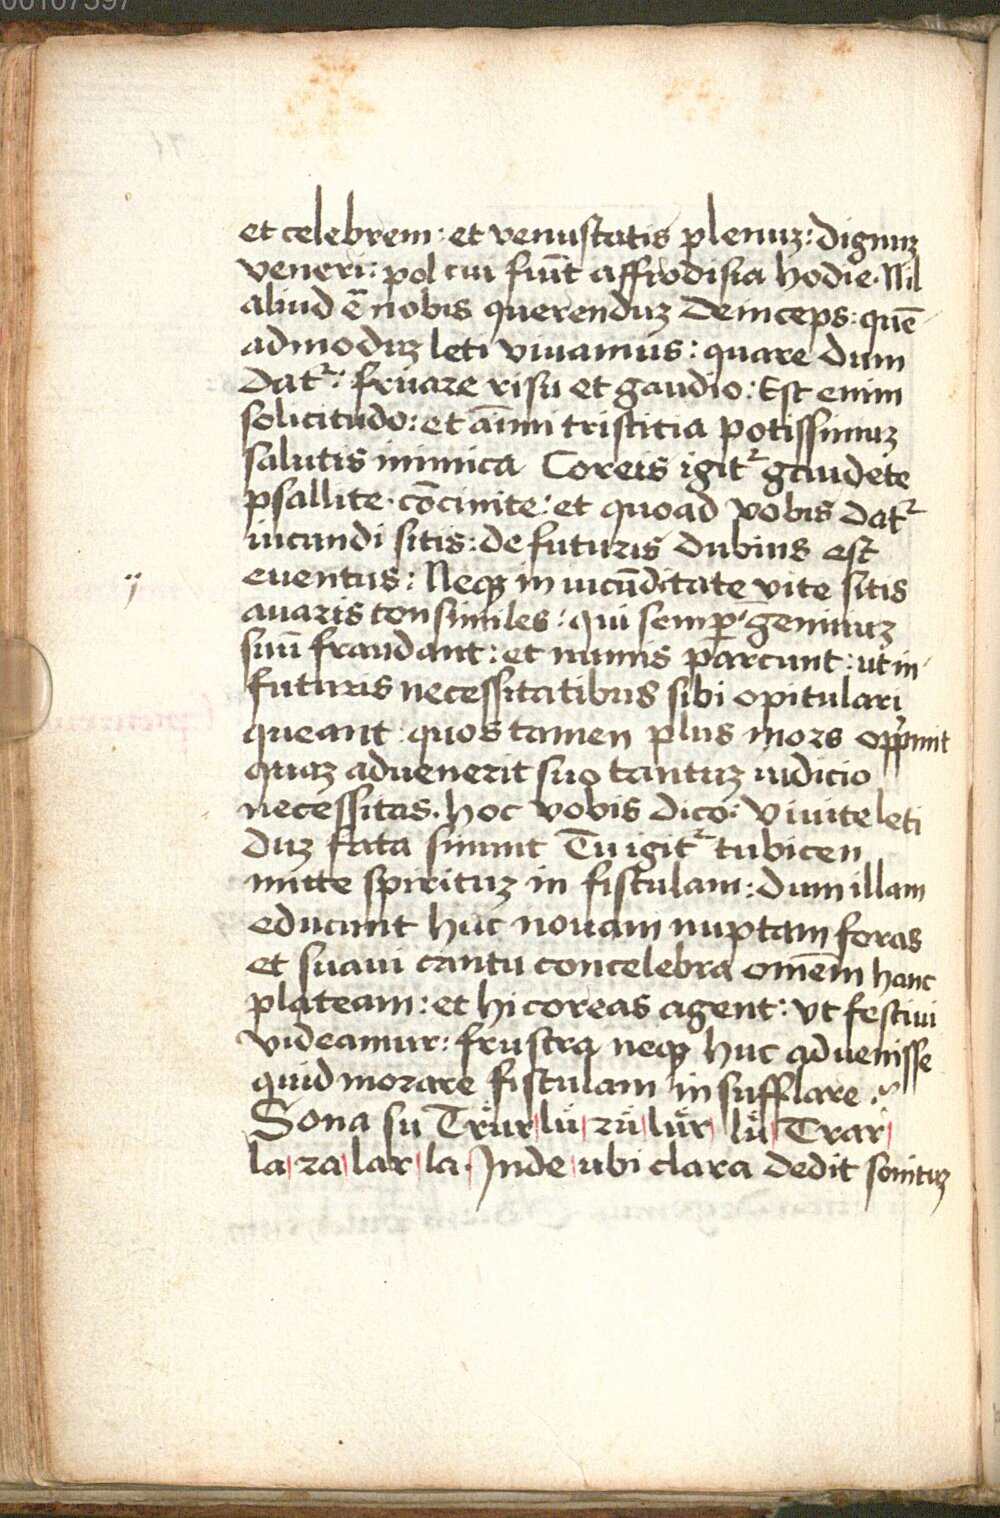 00107597
et celebrem: et venustatis plenuz: dignuz
veneri: pol cui fiūt affrodisia hodie. Nil
aliud ē nobis querenduz deinceps: quē
admoduz leti viuamus: quare dum
datᷣ: fruare risu et gaudio: Est enim
solicitudo: et aīmi tristitia potissimuz
salutis inimica Coreis igitᷣ gaudete
psallite. cōcinite: et quoad vobis datᷣ
iucundi sitis: de futuris dubius est
euentus: Neqꝫ in iucūditate vite sitis
auaris consimiles: qui semꝑ geniuuz
suū fraudant: et numis parcunt: ut in
futuris necessitatibus sibi opitulari
queant: quos tamen plus mors opp̄mit
quaz aduenerit suo tantuz iudicio
necessitas. hoc vobis dico: viuite leti
duz fata sinunt Tu igitᷣ tubicen
mitte spirituz in fistulam: dum illam
educunt huc nouam nuptam foras
et suaui cantu concelebra omēm hanc
plateam: et hi coreas agent: vt festiui
videamur: frustra neqꝫ huc aduenisse
quid morare fistulam insufflare.
Sona su Trür lü zü lür lü Trar
la za lar la. Inde ubi clara dedit sonituz